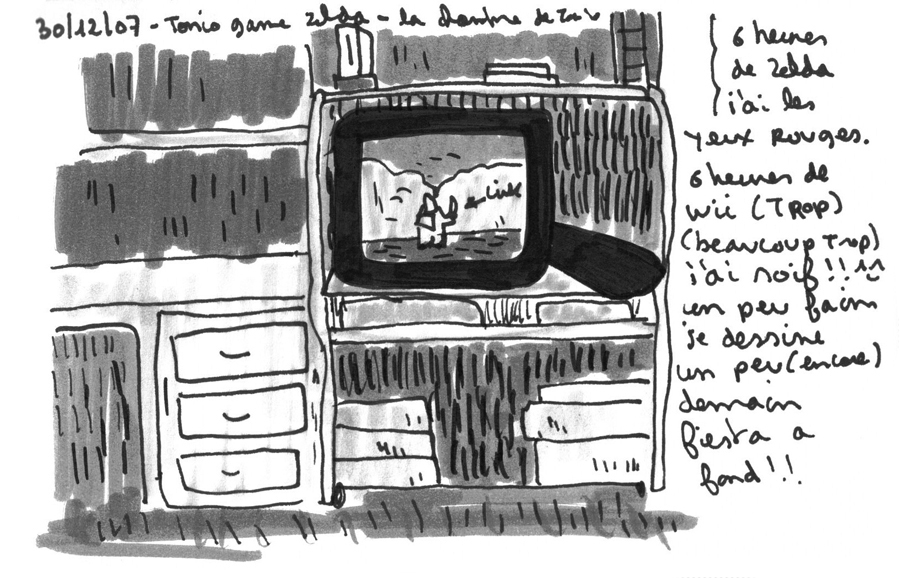 30/12/07 - Tonio game Zelda - la chambre de Tonio
6 heures
de Zelda
j'ai les
yeux Rouges.
6 heures de
wii (TROP)
(beaucoup Trop)
j'ai soif!!
un peu faim
je dessine
un peu (encore)
demain
fiesta a
fond!!
Link